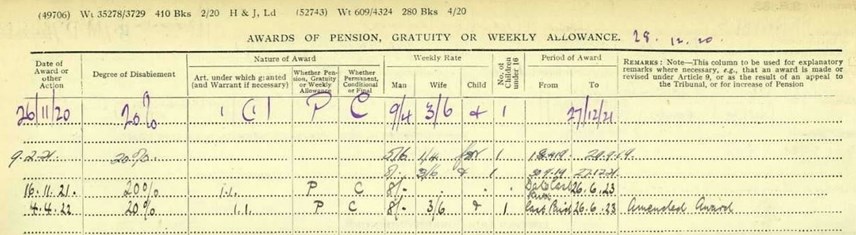 (49706) Wt 35278/3729 410 Bks 2/20 H & J, Ld (52743) Wt 609/4324 280 Bks 4/20
AWARDS OF PENSION, GRATUITY OR WEEKLY ALLOWANCE. 28.12.20.
Date of Award or other Action
Degree of Disablement
Nature of Award
Art. under which granted (and Warrant if necessary)
Whether Pension, Gratuity or Weekly Allowance
Whether Permanent, Conditional or Final
Weekly Rate
Man Wife Child
No. of Children under 16
Period of Award
From To
REMARKS: Note—This column to be used for explanatory remarks where necessary, e.g., that an award is made or revised under Article 9, or as the result of an appeal to the Tribunal, or for increase of Pension
26/11/20 20% 1 (1) P C 9/4 3/6 & 1 27/12/21
9.2.21. 20%. 5/6 1/4 1 20.9.19
3/6 & 1 27.12.21
16.11.21. 20% 1.1. P C 8/- 26.6.23
4.4.22 20% 1.1. P C 8/- 3/6 & 1 26.6.23 Amended Award